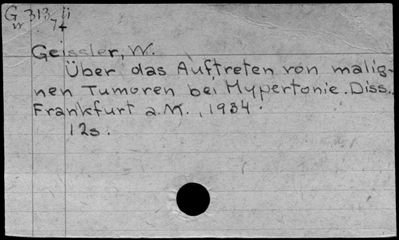 G 313, ii
w 74
Geissler, W.
Über das Auftreten von malig-
nen Tumoren bei Hypertonie. Diss.,
Frankfurt a.M., 1934.
12s.